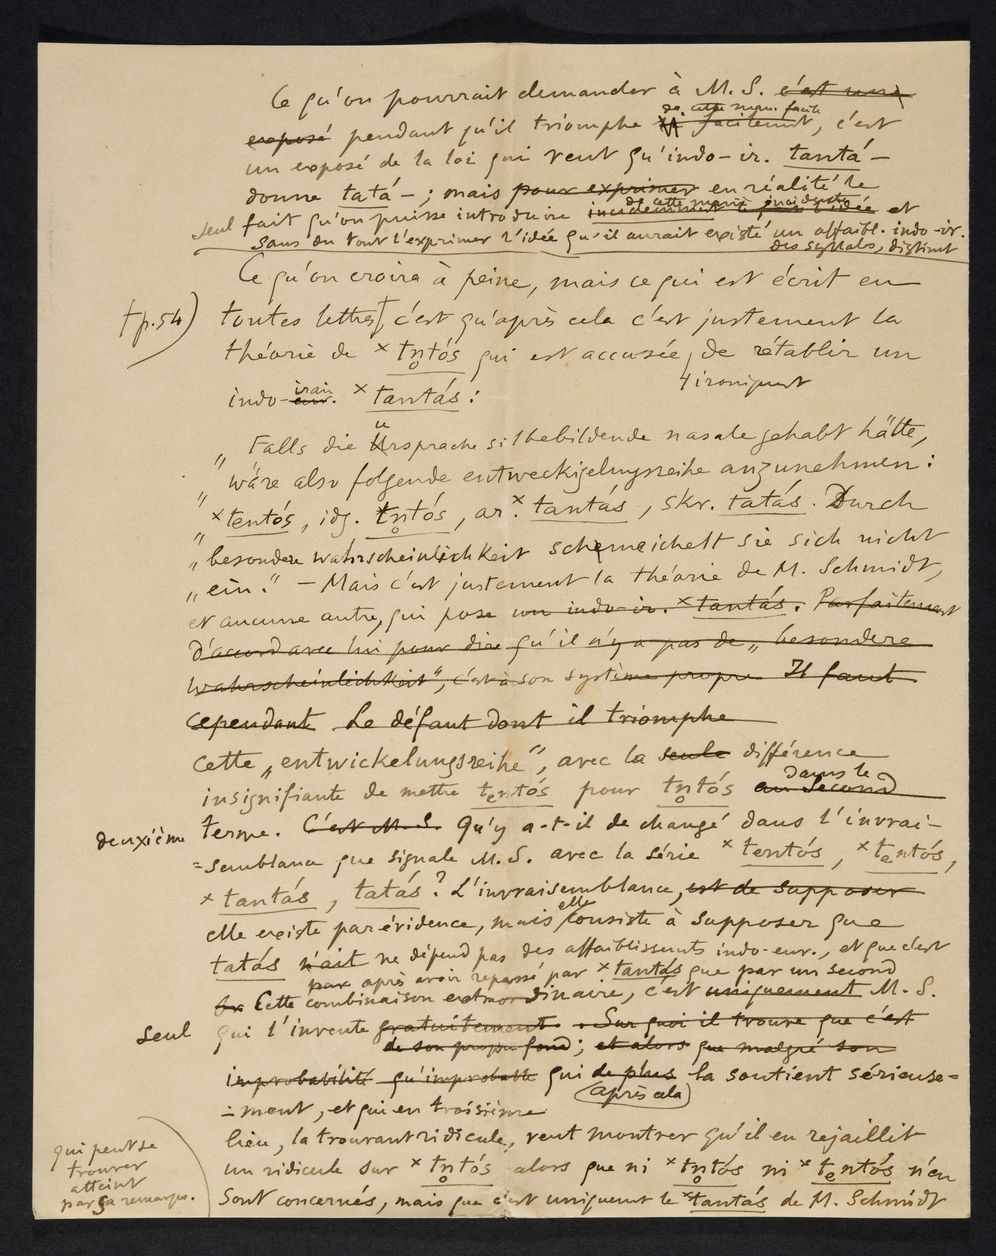 Ce qu'on pourrait demander à M. S. c'est une
exposé pendant qu'il triomphe de cette man. facile facilement, c'est
un exposé de la loi qui veut qu'indo-ir. tantá-
donne tatá- ; mais pour exprimer en réalité le
seul fait qu'on puisse introduire incidemment de cette manière l'idée et
sans du tout l'exprimer l'idée qu'il aurait existé un affaibl. indo-ir.
des syllabes, distinct
Ce qu'on croira à peine, mais ce qui est écrit en
† p. 54) toutes lettres† c'est qu'après cela c'est justement la
théorie de ×tn̥tós qui est accusée, de rétablir un
ironiqumt
indo-eur. iran. ×tantás :
„Falls die Ursprache silbebildende nasale gehabt hätte,
„wäre also folgende entweckigelungsreihe anzunehmen :
„×tentós, idg. tn̥tós, ar. ×tantás, skr. tatás. Durch
„besondere wahrscheinlichkeit schmeichelt sie sich nicht
„ein." – Mais c'est justement la théorie de M. Schmidt,
et aucune autre, qui pose un indo-ir. ×tantás. Parfaitement
d'accord avec lui pour dire qu'il n'y a pas de „besondere
wahrscheinlichkeit", c'est à son système propre Il faut
cependant Le défaut dont il triomphe
cette „entwickelungsreihe", avec la seule différence
insignifiante de mettre tₑntós pour tn̥tós au second dans le
deuxième terme. C'est M. S. Qu'y a-t-il de changé dans l'invrai-
=semblance que signale M. S. avec la série ×tentós, ×tₑntós,
×tantás, tatás? L'invraisemblance, est de supposer
elle existe par évidence, mais elle consiste à supposer que
tatás n'ait ne dépend pas des affaiblissements indo-eur., et que c'est
par après avoir repassé par ×tantás que par un second
Cette combinaison extraordinaire, c'est uniquement M. S.
seul qui l'invente gratuitement. Sur quoi il trouve que c'est
de son propre fond ; et alors que malgré son
improbabilité qu'improbable qui de plus la soutient sérieuse=
(après cela)
=ment, et qui en troisième
lieu, la trouvant ridicule, veut montrer qu'il en rejaillit
un ridicule sur ×tn̥tós alors que ni ×tn̥tós ni ×tₑntós n'en
sont concernés, mais que c'est uniquemt le ×tantás de M. Schmidt
qui peut se
trouver
atteint
par sa remarque.